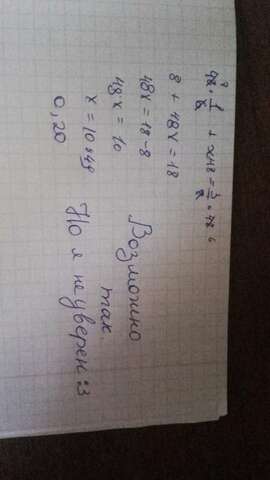 48 · 1/6 + x48 = 3/8 · 48 6
8 + 48x = 18
48x = 18-8
48x = 10
x = 10:48
0,20
Возможно
так.
Но я не уверен :3